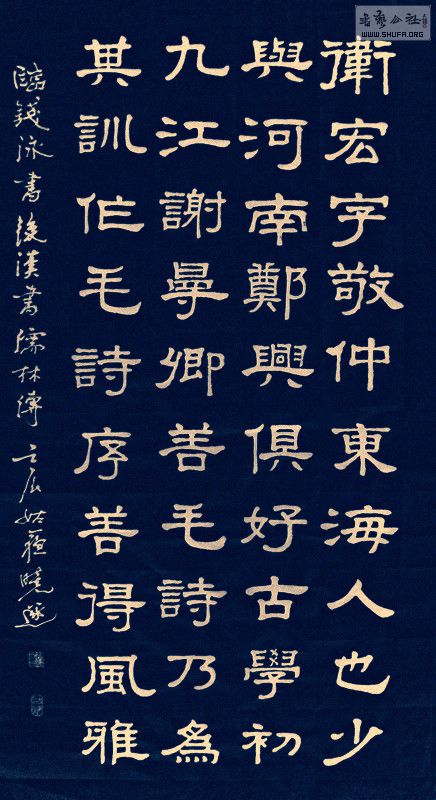 衛宏字敬仲東海人也少
與河南鄭興俱好古學初
九江謝曼卿善毛詩乃為
其訓作毛詩序善得風雅
臨錢泳書後漢書儒林傳壬辰姑蘇曉
書藝公社
WWW.SHUFA.ORG